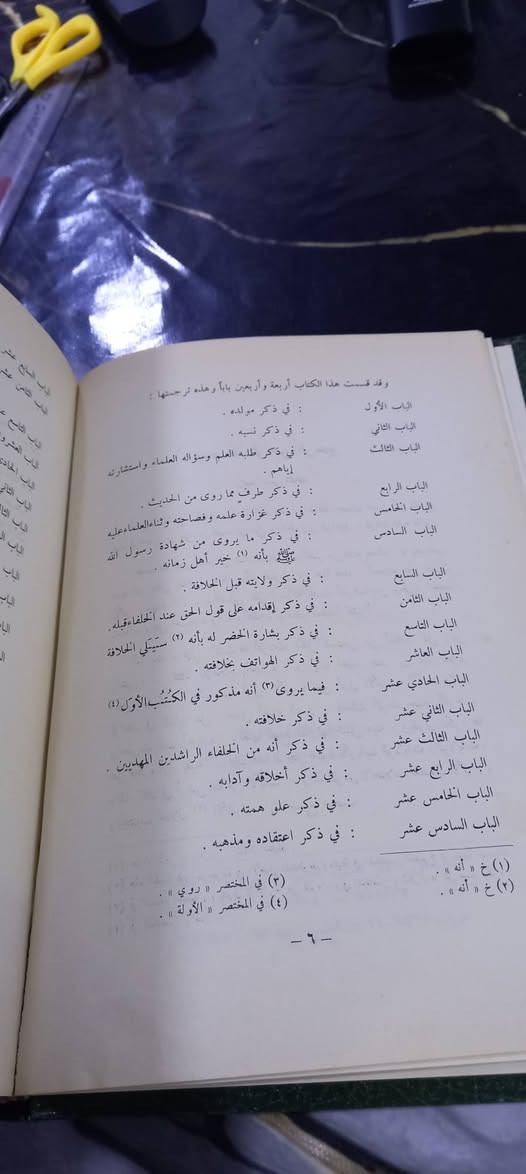 وقد قسمت هذا الكتاب أربعة وأربعين باباً وهذه ترجمتها :
الباب الأول : في ذكر مولده .
الباب الثاني : في ذكر نسبه .
الباب الثالث : في ذكر طلبه العلم وسؤاله العلماء واستشارته
إياهم .
الباب الرابع : في ذكر طرفٍ مما روى من الحديث .
الباب الخامس : في ذكر غزارة علمه وفصاحته وثناء العلماء عليه
الباب السادس : في ذكر ما يروى من شهادة رسول الله
ﷺ بأنه (١) خير أهل زمانه .
الباب السابع : في ذكر ولايته قبل الخلافة .
الباب الثامن : في ذكر إقدامه على قول الحق عند الخلفاء قبله .
الباب التاسع : في ذكر بشارة الخضر له بأنه (٢) سَيَلي الخلافة
الباب العاشر : في ذكر الهواتف بخلافته .
الباب الحادي عشر : فيما يروى (٣) أنه مذكور في الكُتُب الأوَل (٤)
الباب الثاني عشر : في ذكر خلافته .
الباب الثالث عشر : في ذكر أنه من الخلفاء الراشدين المهديين .
الباب الرابع عشر : في ذكر أخلاقه وآدابه .
الباب الخامس عشر : في ذكر علو همته .
الباب السادس عشر : في ذكر اعتقاده ومذهبه .
(١) خ « أنه » . (٣) في المختصر « روي » .
(٢) خ « أنه » . (٤) في المختصر « الأولة » .
– ٦ –